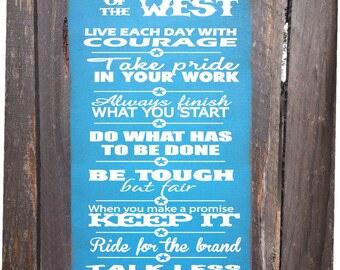 OF THE WEST
LIVE EACH DAY WITH
COURAGE
Take pride
IN YOUR WORK
Always finish
WHAT YOU START
DO WHAT HAS
TO BE DONE
BE TOUGH
but fair
When you make a promise
KEEP IT
Ride for the brand
TALK LESS